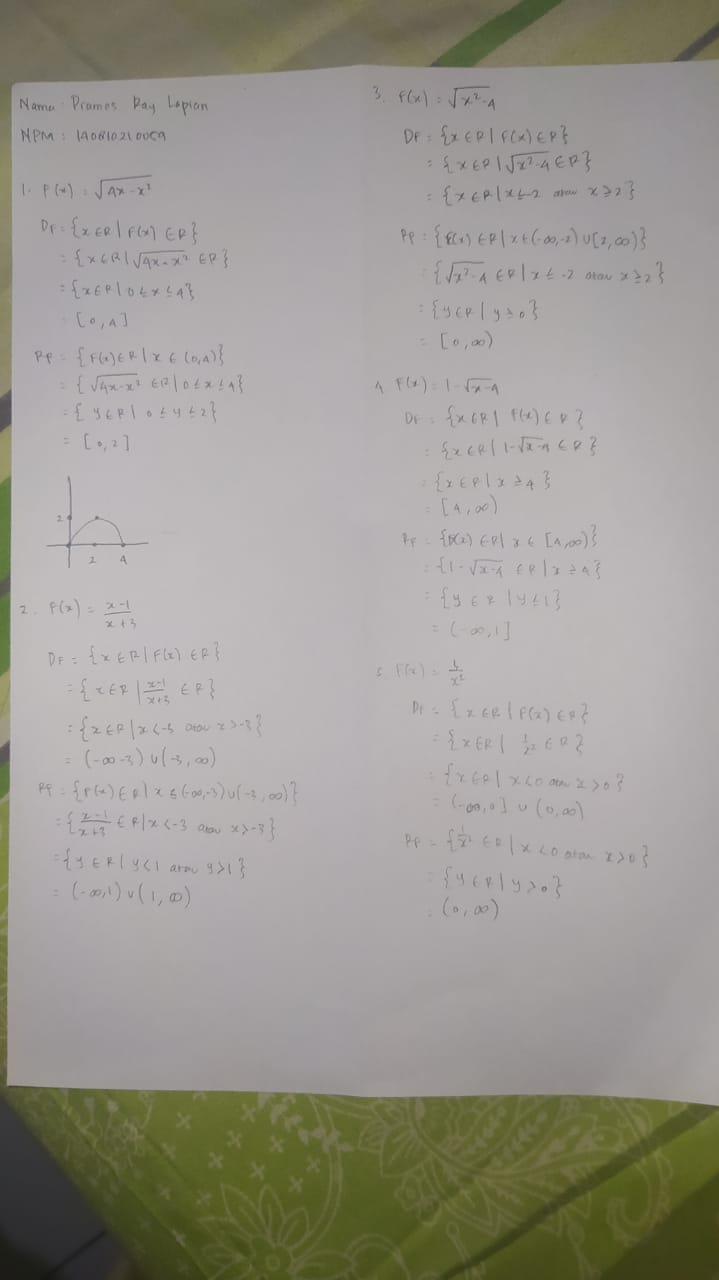 Nama : Pramos Ray Lapian
NPM : 140810210059
1. f(x) = √4x-x²
Df = {x ∈ R | f(x) ∈ R}
= {x ∈ R | √4x-x² ∈ R}
= {x ∈ R | 0 ≤ x ≤ 4}
= [0,4]
Rf = {f(x) ∈ R | x ∈ (0,4)}
= {√4x-x² ∈ R | 0 ≤ x ≤ 4}
= {y ∈ R | 0 ≤ y ≤ 2}
= [0,2]
2
2 4
2. f(x) = x-1/x+3
Df = {x ∈ R | f(x) ∈ R}
= {x ∈ R | x-1/x+3 ∈ R}
= {x ∈ R | x < -3 atau x > -3}
= (-∞ -3) ∪ (-3, ∞)
Rf = {f(x) ∈ R | x ∈ (-∞,-3) ∪ (-3, ∞)}
= {x-1/x+3 ∈ R | x < -3 atau x > -3}
= {y ∈ R | y < 1 atau y > 1}
= (-∞,1) ∪ (1, ∞)
3. f(x) = √x²-4
Df = {x ∈ R | f(x) ∈ R}
= {x ∈ R | √x²-4 ∈ R}
= {x ∈ R | x ≤ -2 atau x ≥ 2}
Rf = {f(x) ∈ R | x ∈ (-∞,-2) ∪ [2, ∞)}
= {√x²-4 ∈ R | x ≤ -2 atau x ≥ 2}
= {y ∈ R | y ≥ 0}
= [0, ∞)
4. f(x) = 1-√x-4
Df = {x ∈ R | f(x) ∈ R}
= {x ∈ R | 1-√x-4 ∈ R}
= {x ∈ R | x ≥ 4}
= [4, ∞)
Rf = {f(x) ∈ R | x ∈ [4, ∞)}
= {1-√x-4 ∈ R | x ≥ 4}
= {y ∈ R | y ≤ 1}
= (-∞, 1]
5. f(x) = 1/x²
Df = {x ∈ R | f(x) ∈ R}
= {x ∈ R | 1/x² ∈ R}
= {x ∈ R | x < 0 atau x > 0}
= (-∞, 0] ∪ (0, ∞)
Rf = {1/x² ∈ R | x < 0 atau x > 0}
= {y ∈ R | y > 0}
= (0, ∞)